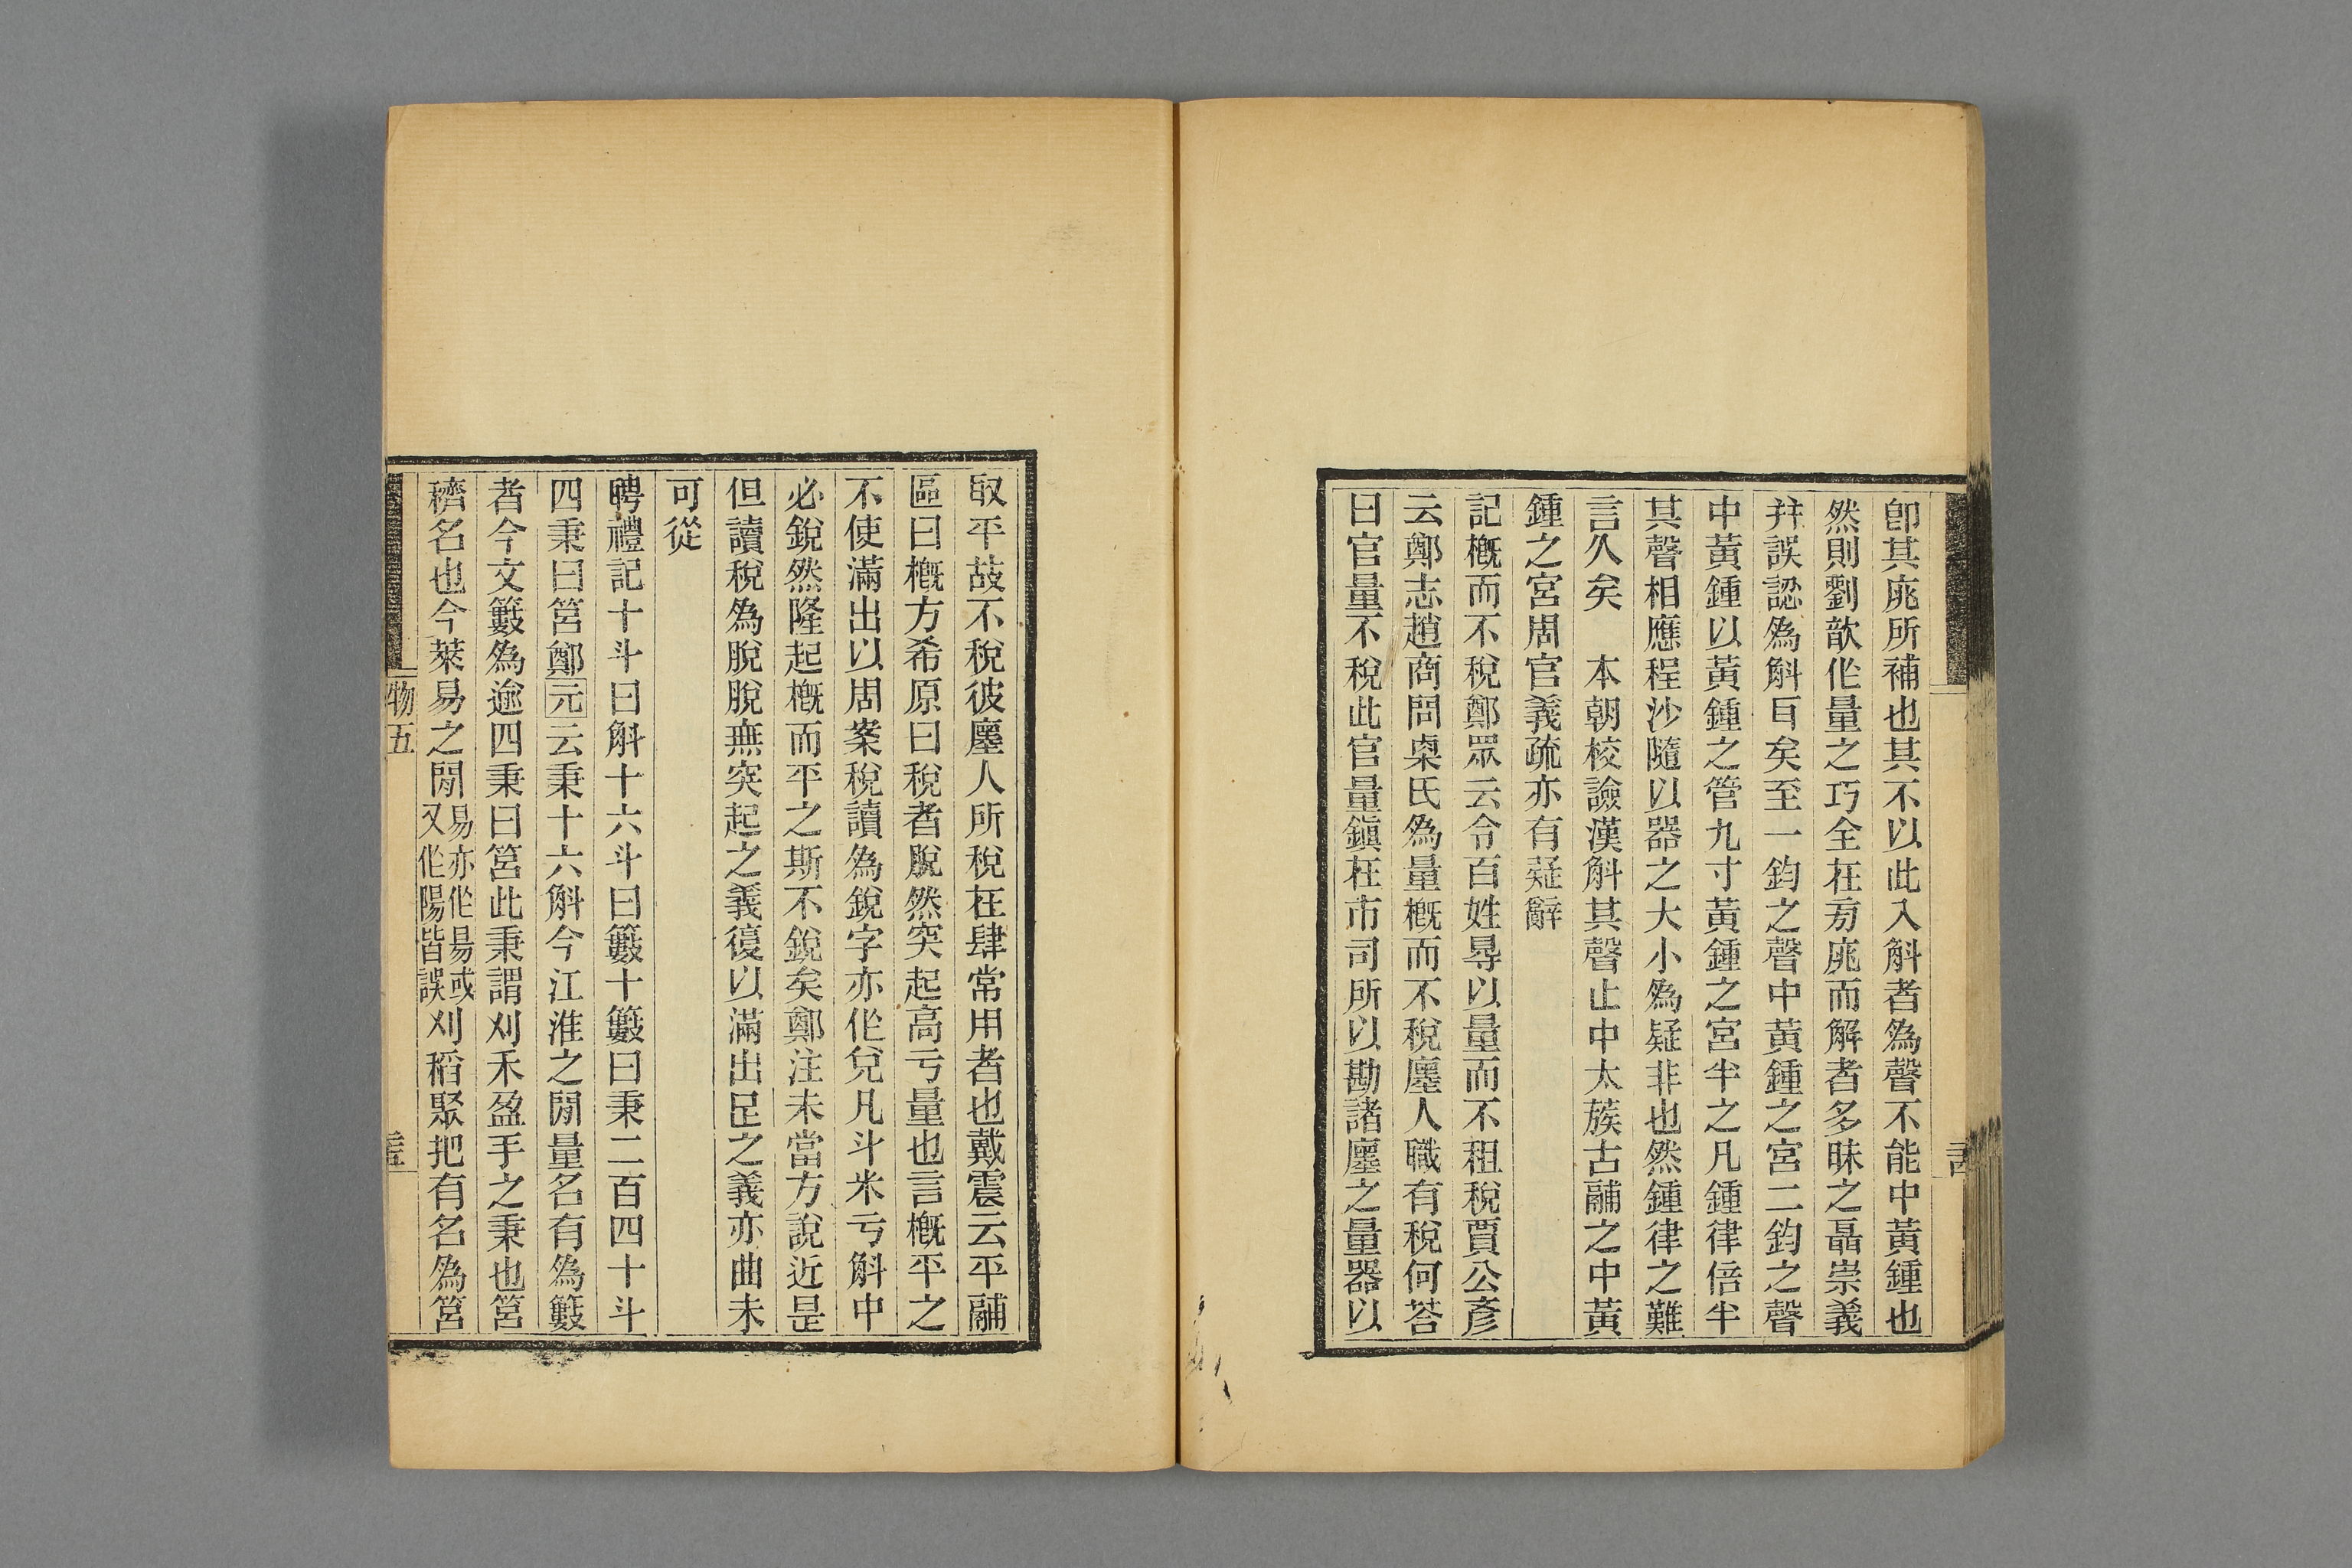 卽其庣所補也其不以此入斛者爲聲不能中黃鍾也
然則劉歆作量之巧全在旁庣而解者多昧之聶崇義
幷誤認爲斛耳矣至一鈞之聲中黃鍾之宮二鈞之聲
中黃鍾以黃鍾之管九寸黃鍾之宮半之凡鍾律倍半
其聲相應程沙隨以器之大小爲疑非也然鍾律之難
言久矣　本朝校諭漢斛其聲止中太蔟古鬴之中黃
鍾之宮周官義疏亦有疑辭
記槪而不稅鄭眾云令百姓㝵以量而不租稅賈公彥
云鄭志趙商問㮚氏爲量槪而不稅廛人職有稅何荅
曰官量不稅此官量鎭在市司所以勘諸廛之量器以
取平故不稅彼廛人所稅在肆常用者也戴震云平鬴
區曰槪方希原曰稅者脫然突起高亏量也言槪平之
不使滿出以周案稅讀爲銳字亦作兌凡斗米亏斛中
必銳然隆起槪而平之斯不銳矣鄭注未當方說近是
但讀稅爲脫脫無突起之義復以滿出足之義亦曲未
可從
聘禮記十斗曰斛十六斗曰籔十籔曰秉二百四十斗
四秉曰筥鄭元云秉十六斛今江淮之閒量名有爲籔
者今文籔爲逾四秉曰筥此秉謂刈禾盈手之秉也筥
穧名也今萊易之閒易亦作昜或又作陽皆誤刈稻聚把有名爲筥
物五